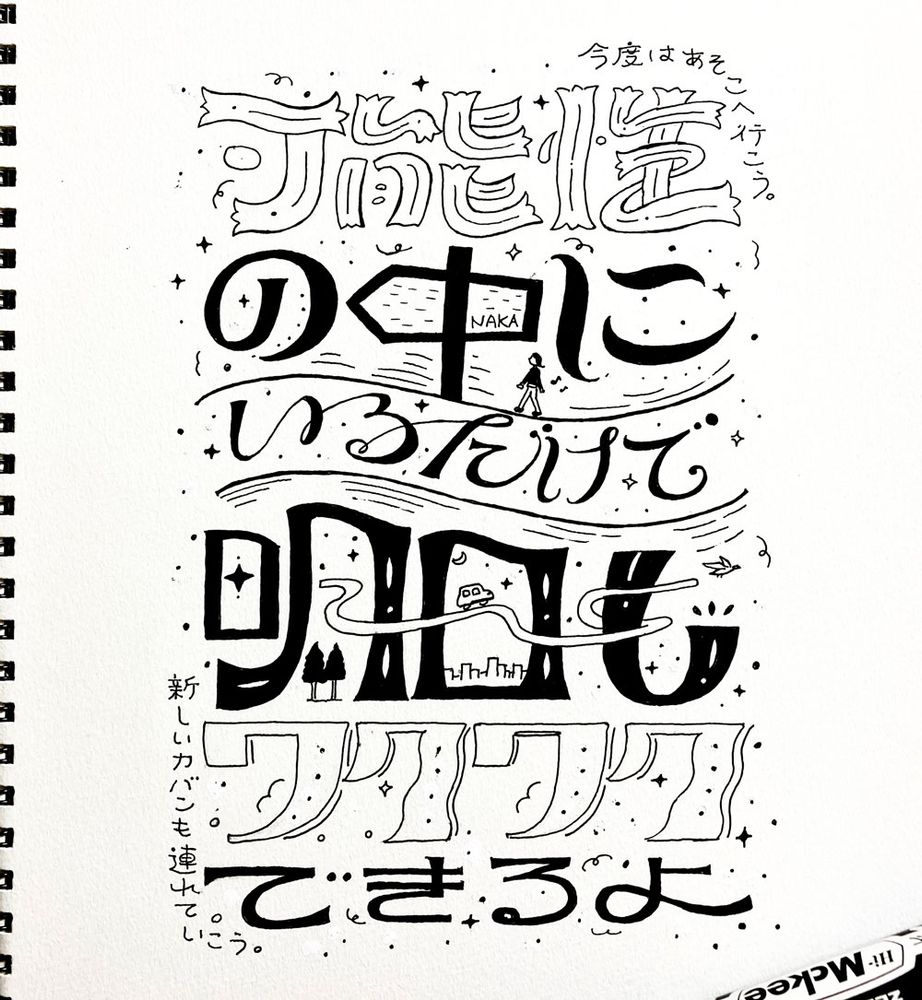 今度はあそこへ行こう。
可能性
の中に
NAKA
いるだけで
明日も
ワクワク
できるよ
新しいカバンも連れていこう。
Hi-Mckee